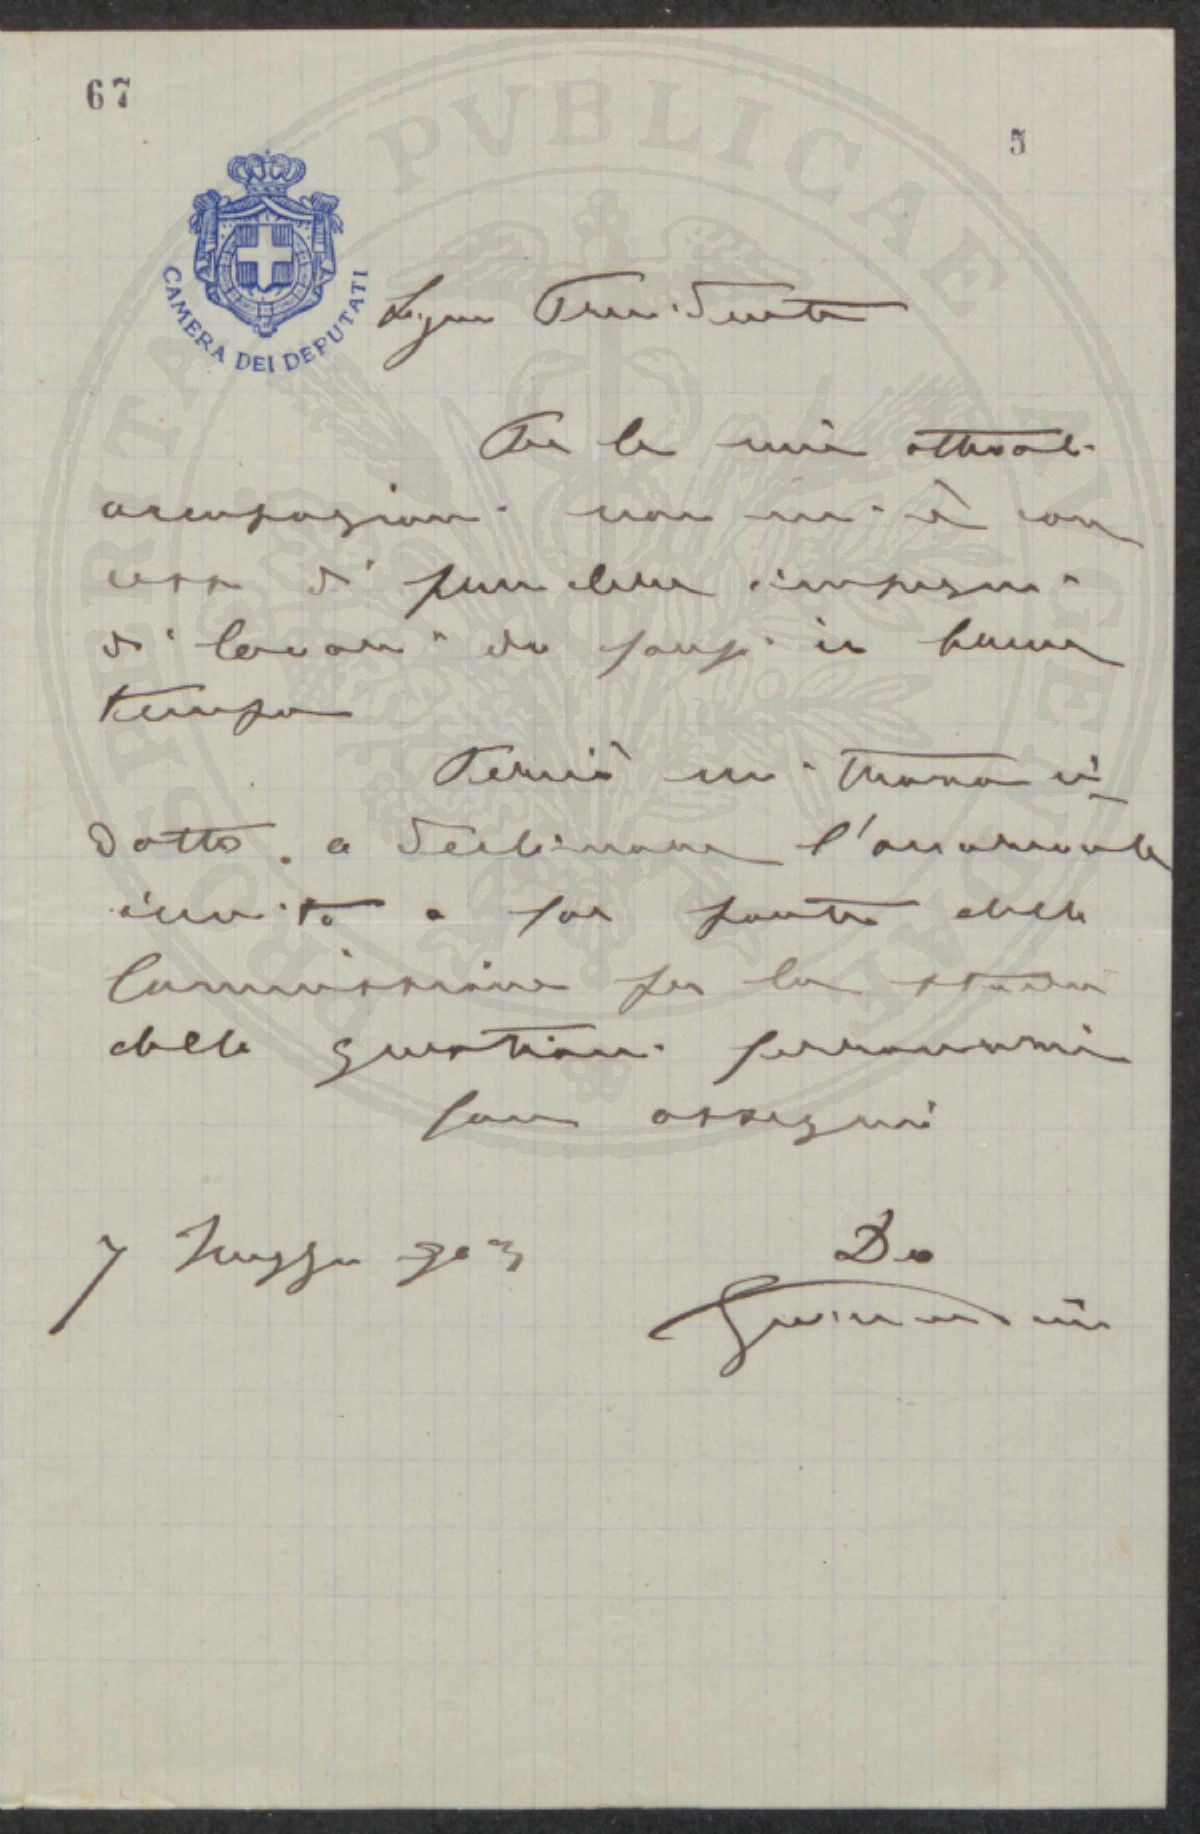 67
5
CAMERA DEI DEPUTATI
PROSPERITATI PVBLICAE AVGENDAE
Signor Presidente
Per le mie attuali
occupazioni non mi è con
cesso di prendere impegni
di lavori da farsi in breve
tempo
Perciò mi trovo in
dotto a declinare l'onorevole
invito a far parte della
Commissione per lo studio
delle questioni ferroviarie
Con ossequi
7 Maggio 903
Do